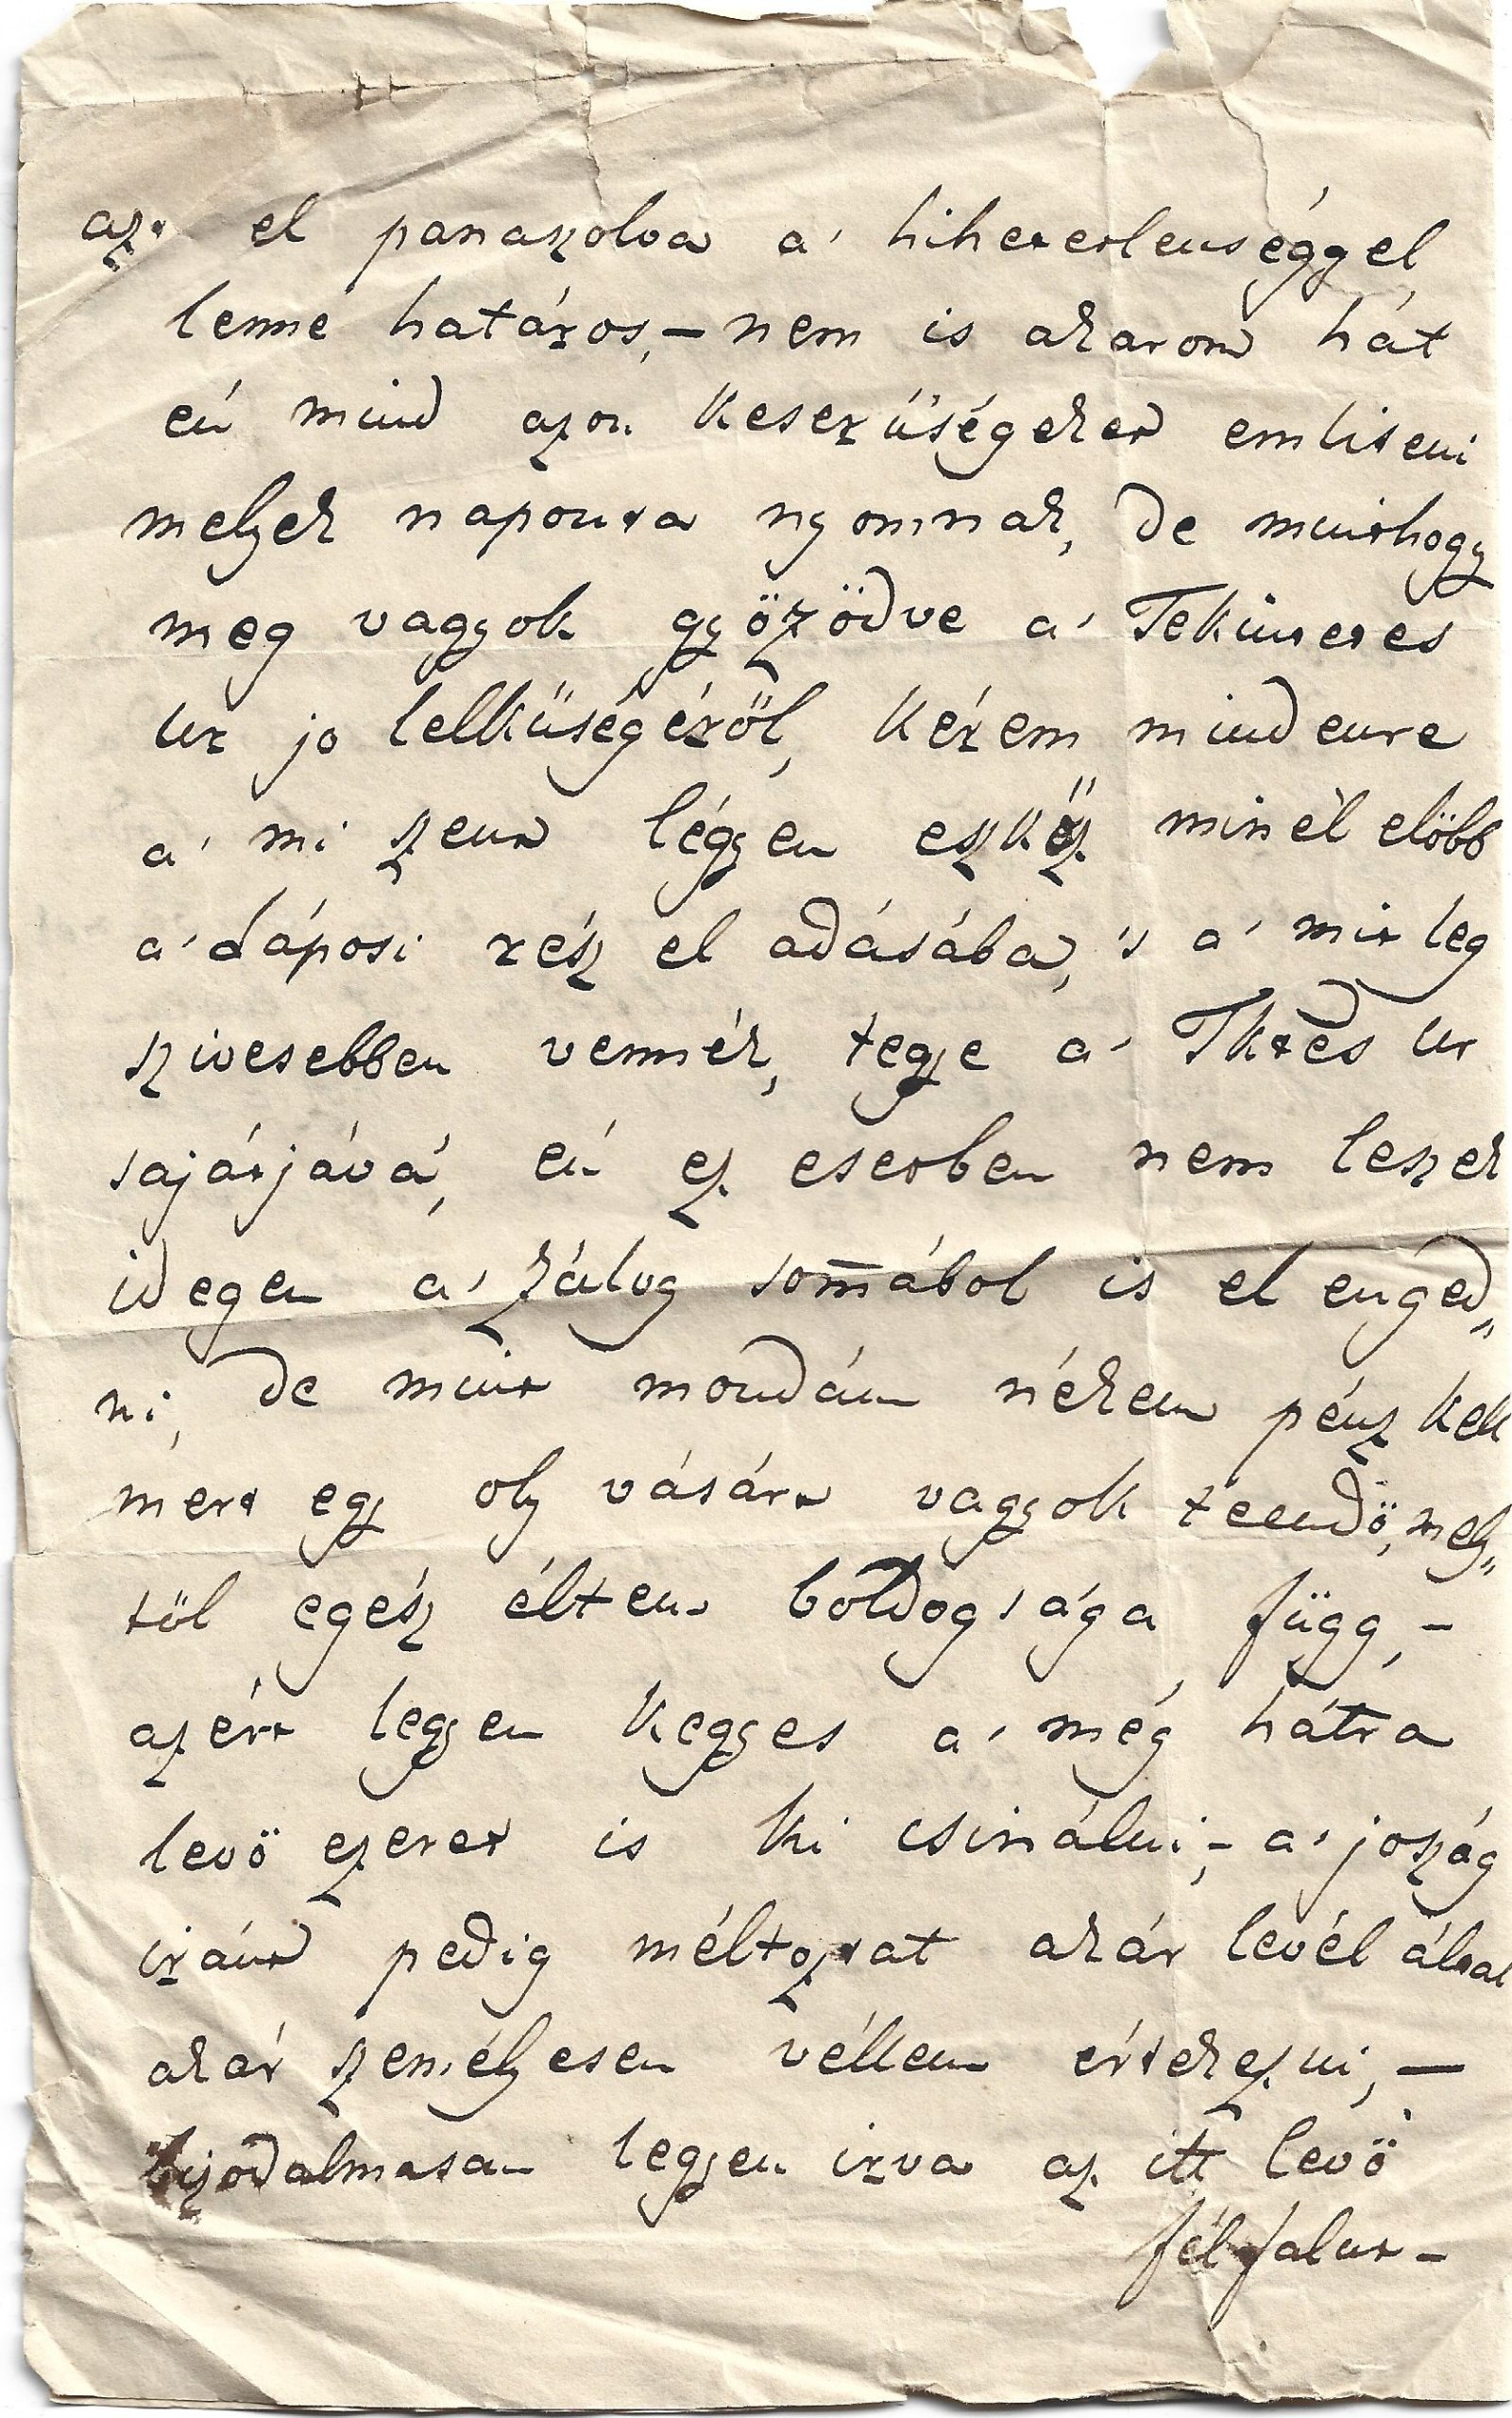 azt el panaszolva a' hihetetlenséggel
lenne határos, – nem is akarom hát
én mind azon keserűségeket emliteni
melyek naponta nyomnak, de minthogy
meg vagyok győződve a' Tekintetes
Ur jo lelkűségéről, kérem mindenre
a' mi szent légyen eszköz minél előbb
a' Láposi rész el adásába, 's a' mit leg
szivesebben vennék, tegye a' Tktes Ur
sajátjává, én ez esetben nem leszek
idegen a' zálog som̅ából is el enged„
ni, de mint mondám nékem pénz kell
mert egy oly vásárt vagyok teendő, mely„
től egész éltem boldogsága függ, –
azért legyen kegyes a' még hátra
levö ezeret is ki csinálni, – a' joszág
iránt pedig méltoztat akár levél által
akár személyesen vélem értekezni, –
bizodalmasan legyen irva az itt levö
fél falut –